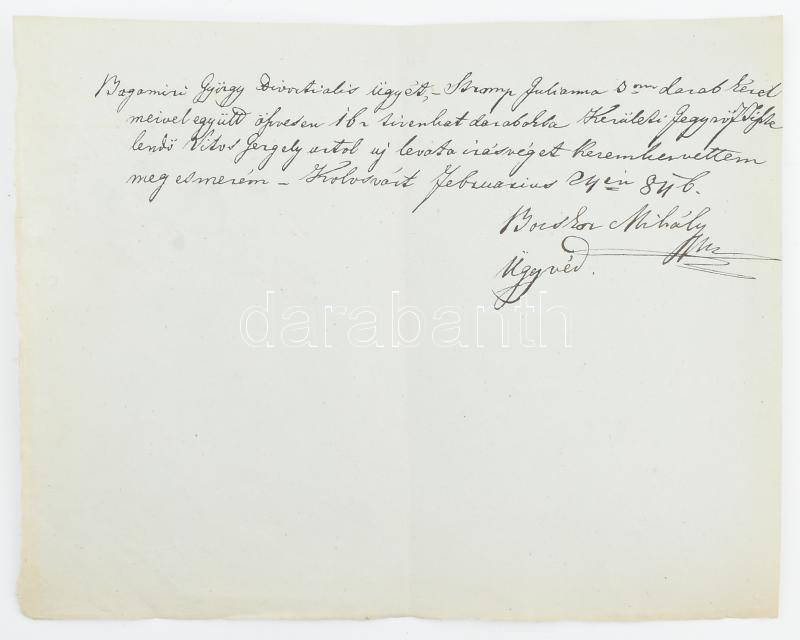 Bagamiri György Divortialis ügyét, – Stromp Julianna 3om darab kérel
meivel együtt öszvesen 16r tizenhat darabokba Kerületi Jegyző Tiszte
lendő Vitos Gergely urtol uj levata irásvéget kezemhez vettem
meg esmerém – Kolosvárt Februarius 24én 846.
Bocskor Mihály
Ügyvéd.
darabanth